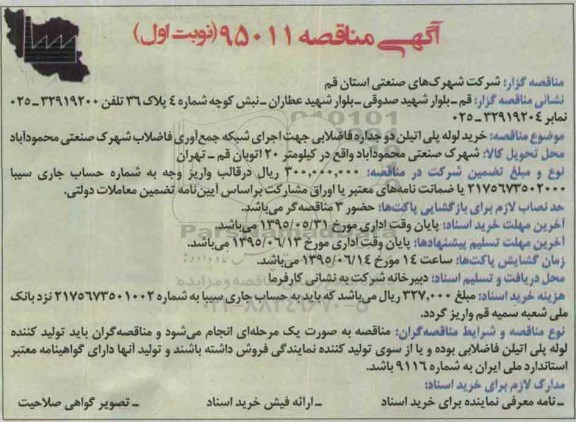 آگهی مناقصه ۹۵۰۱۱ (نوبت اول)
مناقصه گزار: شرکت شهرک‌های صنعتی استان قم
نشانی مناقصه گزار: قم ـ بلوار شهید صدوقی ـ بلوار شهید عطاران ـ نبش کوچه شماره ٤ پلاک ۳۶ تلفن ۳۲۹۱۹۲۰۰ ـ ۰۲۵
نمابر ۳۲۹۱۹۲۰٤ ـ ۰۲۵
موضوع مناقصه: خرید لوله پلی اتیلن دو جداره فاضلابی جهت اجرای شبکه جمع‌آوری فاضلاب شهرک صنعتی محمودآباد
محل تحویل کالا: شهرک صنعتی محمودآباد واقع در کیلومتر ۲۰ اتوبان قم ـ تهران
نوع و مبلغ تضمین شرکت در مناقصه: ۳۰۰,۰۰۰,۰۰۰ ریال درقالب واریز وجه به شماره حساب جاری سیبا
۲۱۷۵۶۷۳۵۰۲۰۰۰ یا ضمانت نامه‌های معتبر یا اوراق مشارکت براساس آیین‌نامه تضمین معاملات دولتی.
حد نصاب لازم برای بازگشایی پاکت‌ها: حضور ۳ مناقصه‌گر می‌باشد.
آخرین مهلت خرید اسناد: پایان وقت اداری مورخ ۱۳۹۵/۰۵/۳۱ می‌باشد.
آخرین مهلت تسلیم پیشنهادها: پایان وقت اداری مورخ ۱۳۹۵/۰۶/۱۳ می‌باشد.
زمان گشایش پاکت‌ها: ساعت ۱٤ مورخ ۱۳۹۵/۰۶/۱٤ می‌باشد.
محل دریافت و تسلیم اسناد: دبیرخانه شرکت به نشانی کارفرما
هزینه خرید اسناد: مبلغ ۳۲۷,۰۰۰ ریال می‌باشد که باید به حساب جاری سیبا به شماره ۲۱۷۵۶۷۳۵۰۱۰۰۲ نزد بانک
ملی شعبه سمیه قم واریز گردد.
نوع مناقصه و شرایط مناقصه‌گران: مناقصه به صورت یک مرحله‌ای انجام می‌شود و مناقصه‌گران باید تولید کننده
لوله پلی اتیلن فاضلابی بوده و یا از سوی تولید کننده نمایندگی فروش داشته باشند و تولید آنها دارای گواهینامه معتبر
استاندارد ملی ایران به شماره ۹۱۱۶ باشد.
مدارک لازم برای خرید اسناد:
ـ نامه معرفی نماینده برای خرید اسناد ـ ارائه فیش خرید اسناد ـ تصویر گواهی صلاحیت